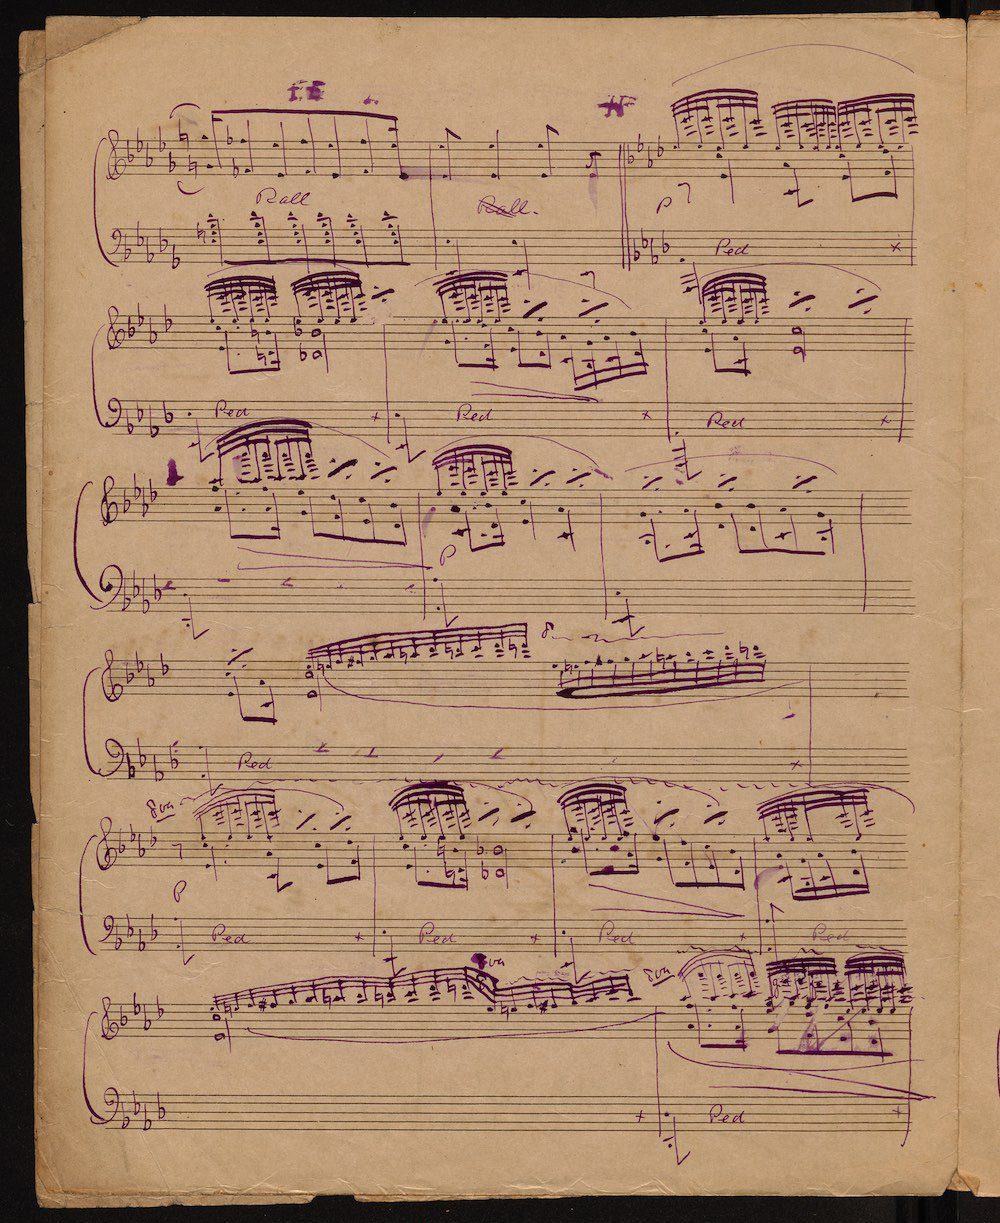 Rall Rall.
P Ped x
Ped x Ped x Ped x
P
8
Ped x
8va
P
Ped x Ped x Ped x Ped
8va 8va
x Ped x